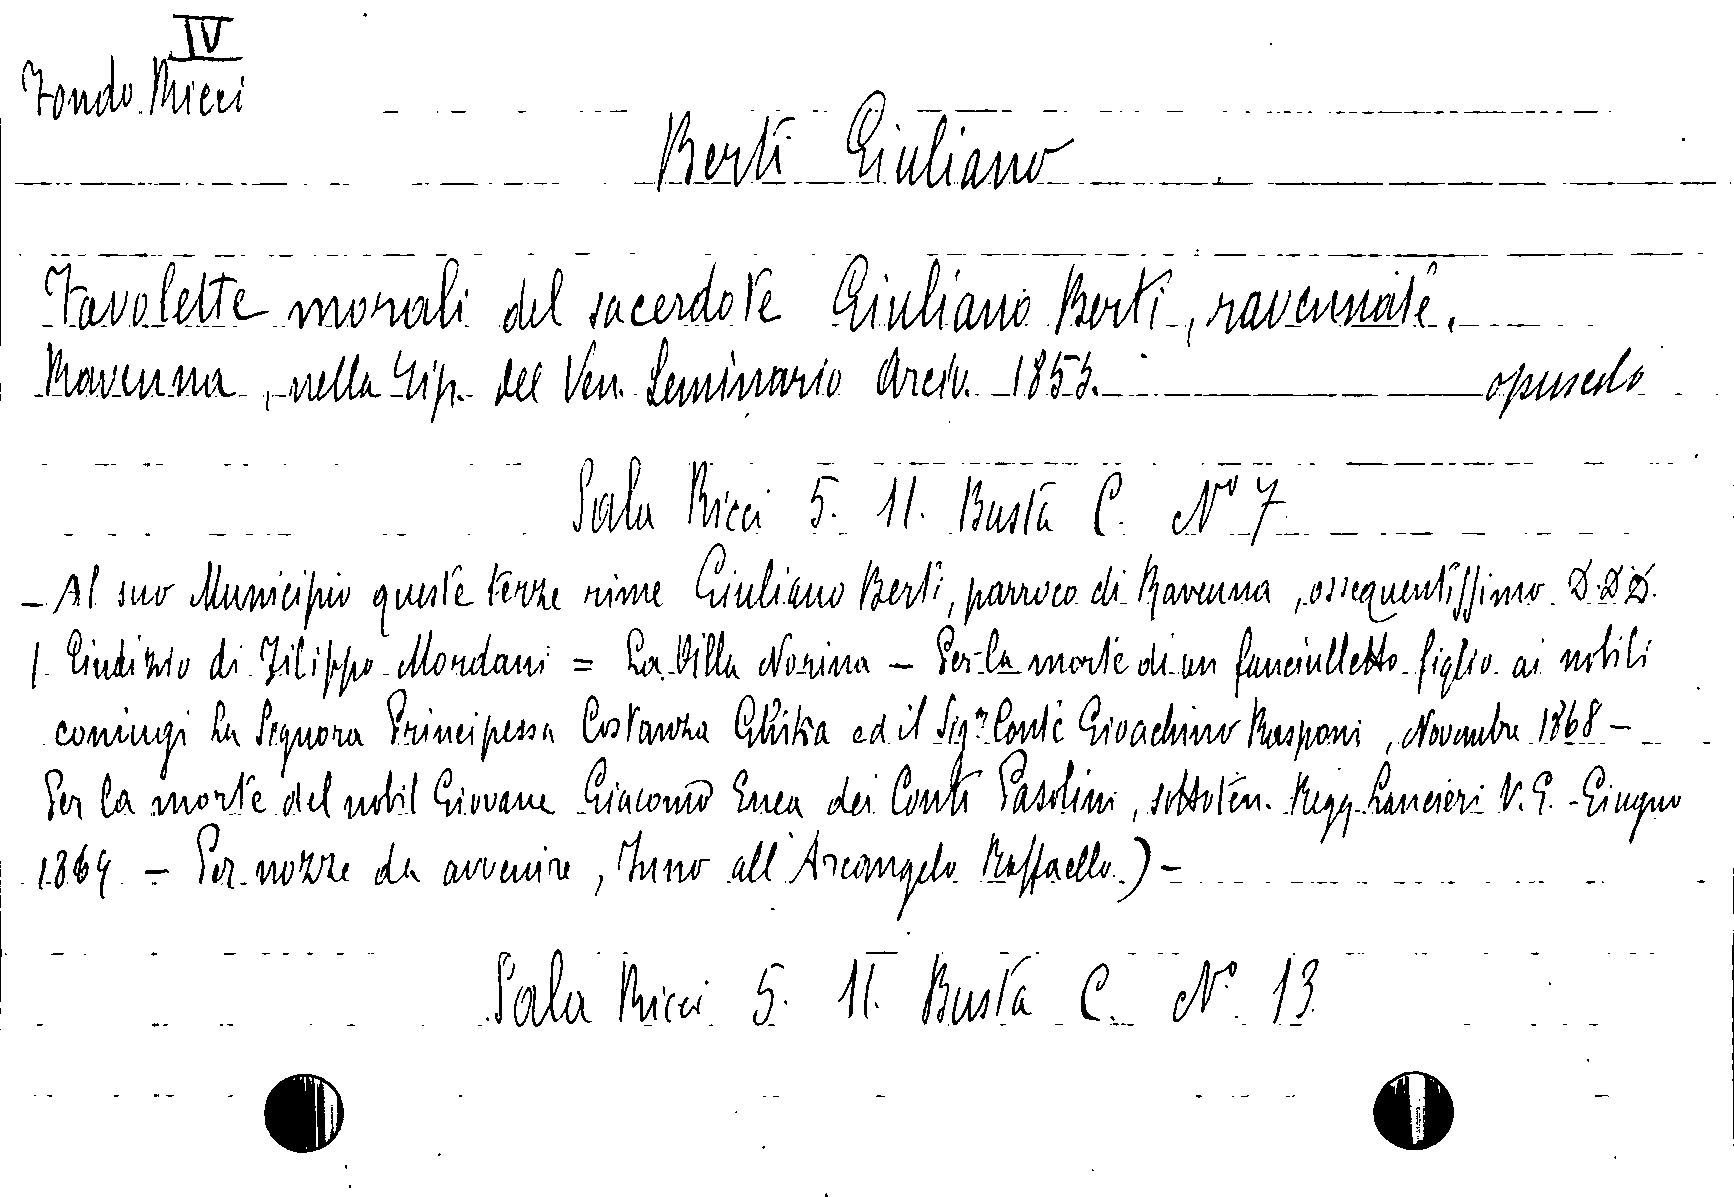 IV
Fondo Ricci
Berti Giuliano
Favolette morali del sacerdote Giuliano Berti, ravennate.
Ravenna, nella Tip. del Ven. Seminario Arciv. 1853. opuscolo
Sala Ricci 5. 11. Busta C. N° 7
- Al suo Municipio queste terze rime Giuliano Berti, parroco di Ravenna, ossequentissimo D.D.D.
( Giudizio di Filippo Mordani = La Villa Norina - Per la morte di un fanciulletto figlio ai nobili
coniugi La Signora Principessa Costanza Ghika ed il Sigr Conte Gioachino Rasponi, Novembre 1868 -
Per la morte del nobil Giovane Giacomo Enea dei Conti Pasolini, sottoten. Regg. Lancieri V. E. - Giugno
1869 - Per nozze da avvenire, Inno all'Arcangelo Raffaello.) -
Sala Ricci 5. 11. Busta C. N° 13